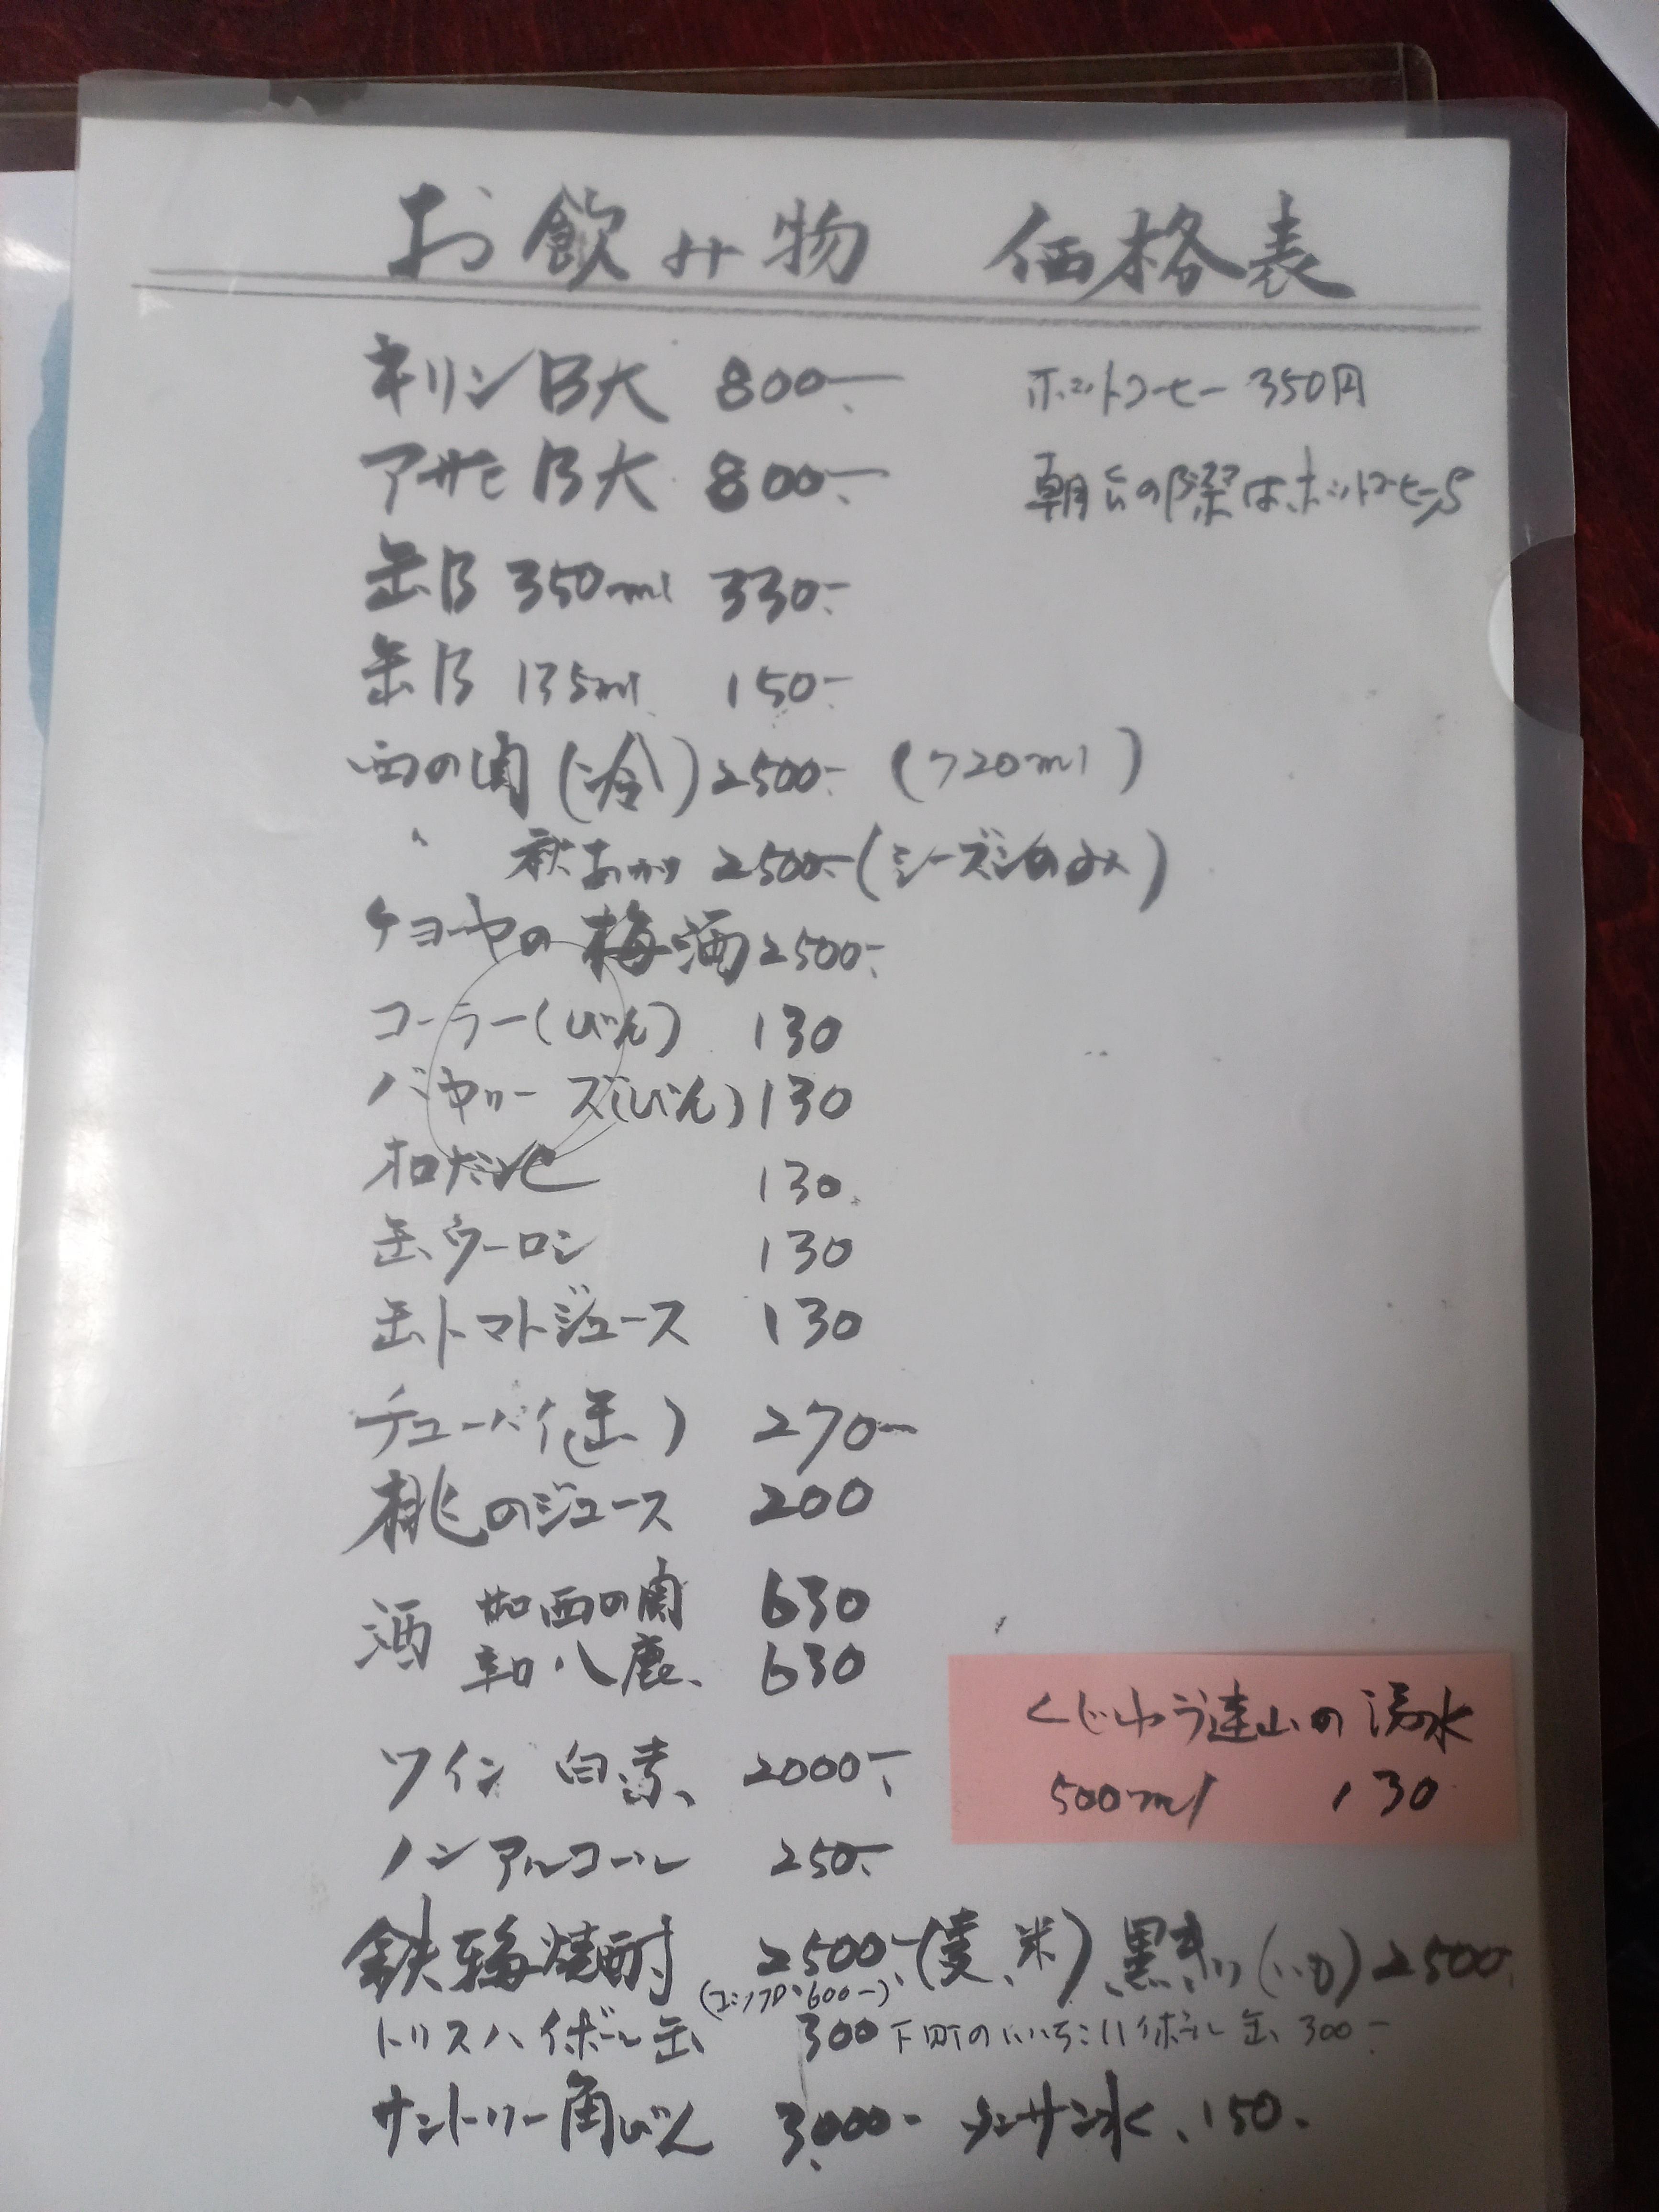 お飲み物 価格表
キリンB大 800-
ホットコーヒー 350円
アサヒB大 800-
朝食の際はホットコーヒー
缶B 350ml 330-
缶B 135ml 150-
西の関(冷) 2500- (720ml)
〃 秋あがり 2500-(シーズンのみ)
チョーヤの梅酒 2500-
コーラー(びん) 130
バヤリーズ(びん) 130
オロナミンC 130
缶ウーロン 130
缶トマトジュース 130
チューハイ(缶) 270-
桃のジュース 200
酒 西の関 630
八鹿 630
くじゅう連山の湧水
500ml 130
ワイン 白、赤 2000-
ノンアルコール 250-
鉄輪焼酎 2500-(麦、米) (いも) 2500-
(コップ 600-)
トリスハイボール缶 300 下町のハイボール缶 300-
サントリー角びん 3,000- タンサン水、150-